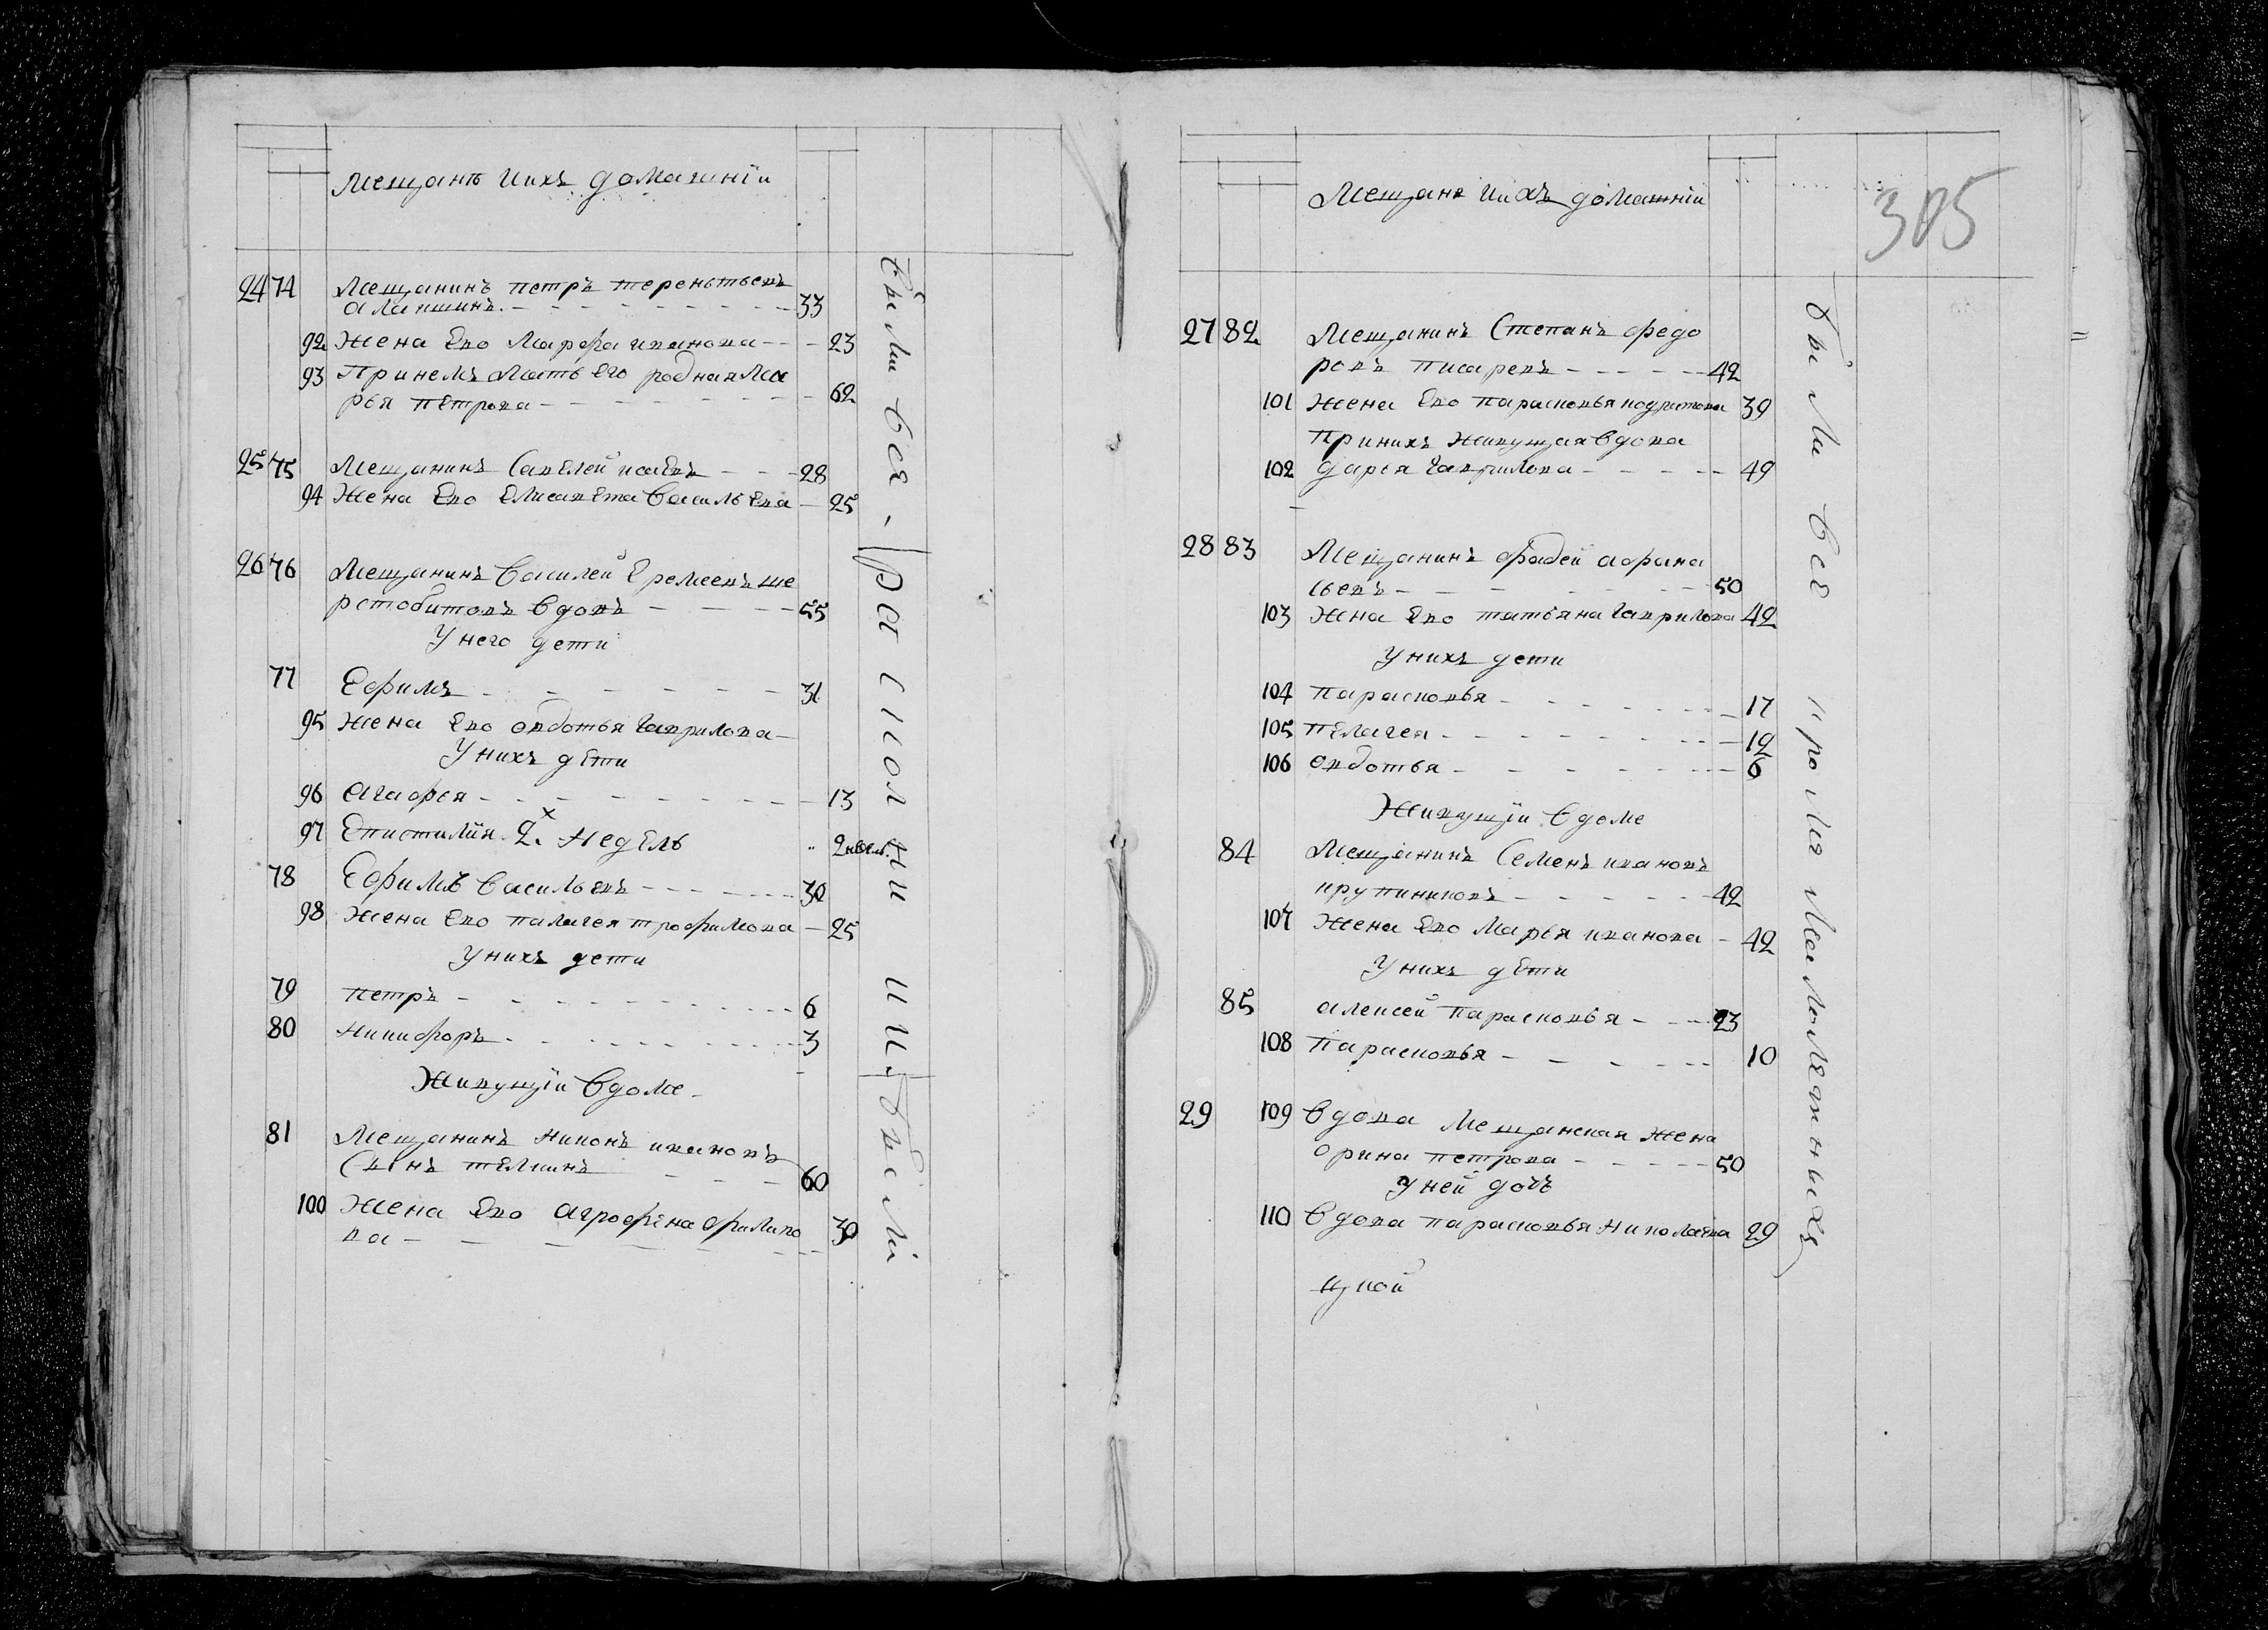 Мещанъ иихъ домашнiи
24 74 Мещанинъ петръ терентьевъ
алапшинъ. 33
92 Жена Ево Марфа иванова 23
93 Принемъ мать Его родная Ма
рья пЕтрова 62
25 75 Мещанинъ СавЕлей 28
94 Жена Ево ЕлисавЕта ВасильЕва 25
26 76 Мещанинъ Василей Еремеевъ ше
рстобитовъ Вдовъ 55
Унего дети
77 Ефимъ 31
95 Жена Ево овдотья гаврилова
Унихъ дЕти
96 Агафья 13
97 Епистимiя 2. недЕль 2 недел.
78 Ефимъ ВасильЕвъ 30
98 Жена Ево палагея трофимова 25
Унихъ дети
79 петръ 6
80 никифоръ 3
Живущiи Вдоме
81 Мещанинъ никонъ ивановъ
Сынъ тЕлкинъ 60
100 Жена Ево Агрофена филипо
ва 30
были Вся. раскольники. были
Мещанъ иихъ домашнiи
305
27 82 Мещанинъ Степанъ федо
ровъ писаревъ 42
101 Жена Ево парасковья кодратова 39
Принихъ Живущая Вдова
102 дарья гаврилова 49
28 83 Мещанинъ фадей афана
сьевъ 50
103 Жена Ево татьяна гаврилова 42
Унихъ дети
104 парасковья 17
105 пЕлагея 12
106 овдотья 6
Живущiи Вдоме
84 Мещанинъ Семенъ ивановъ
крупениковъ 42
107 Жена Ево Марья иванова 42
Унихъ дЕти
85 алексей парасковья 23
108 парасковья 10
29 109 Вдова Мещанская жена
Орина петрова 50
Уней дочь
110 Вдова парасковья николаЕва 29
цкой
были Все кромя Малолетныхъ